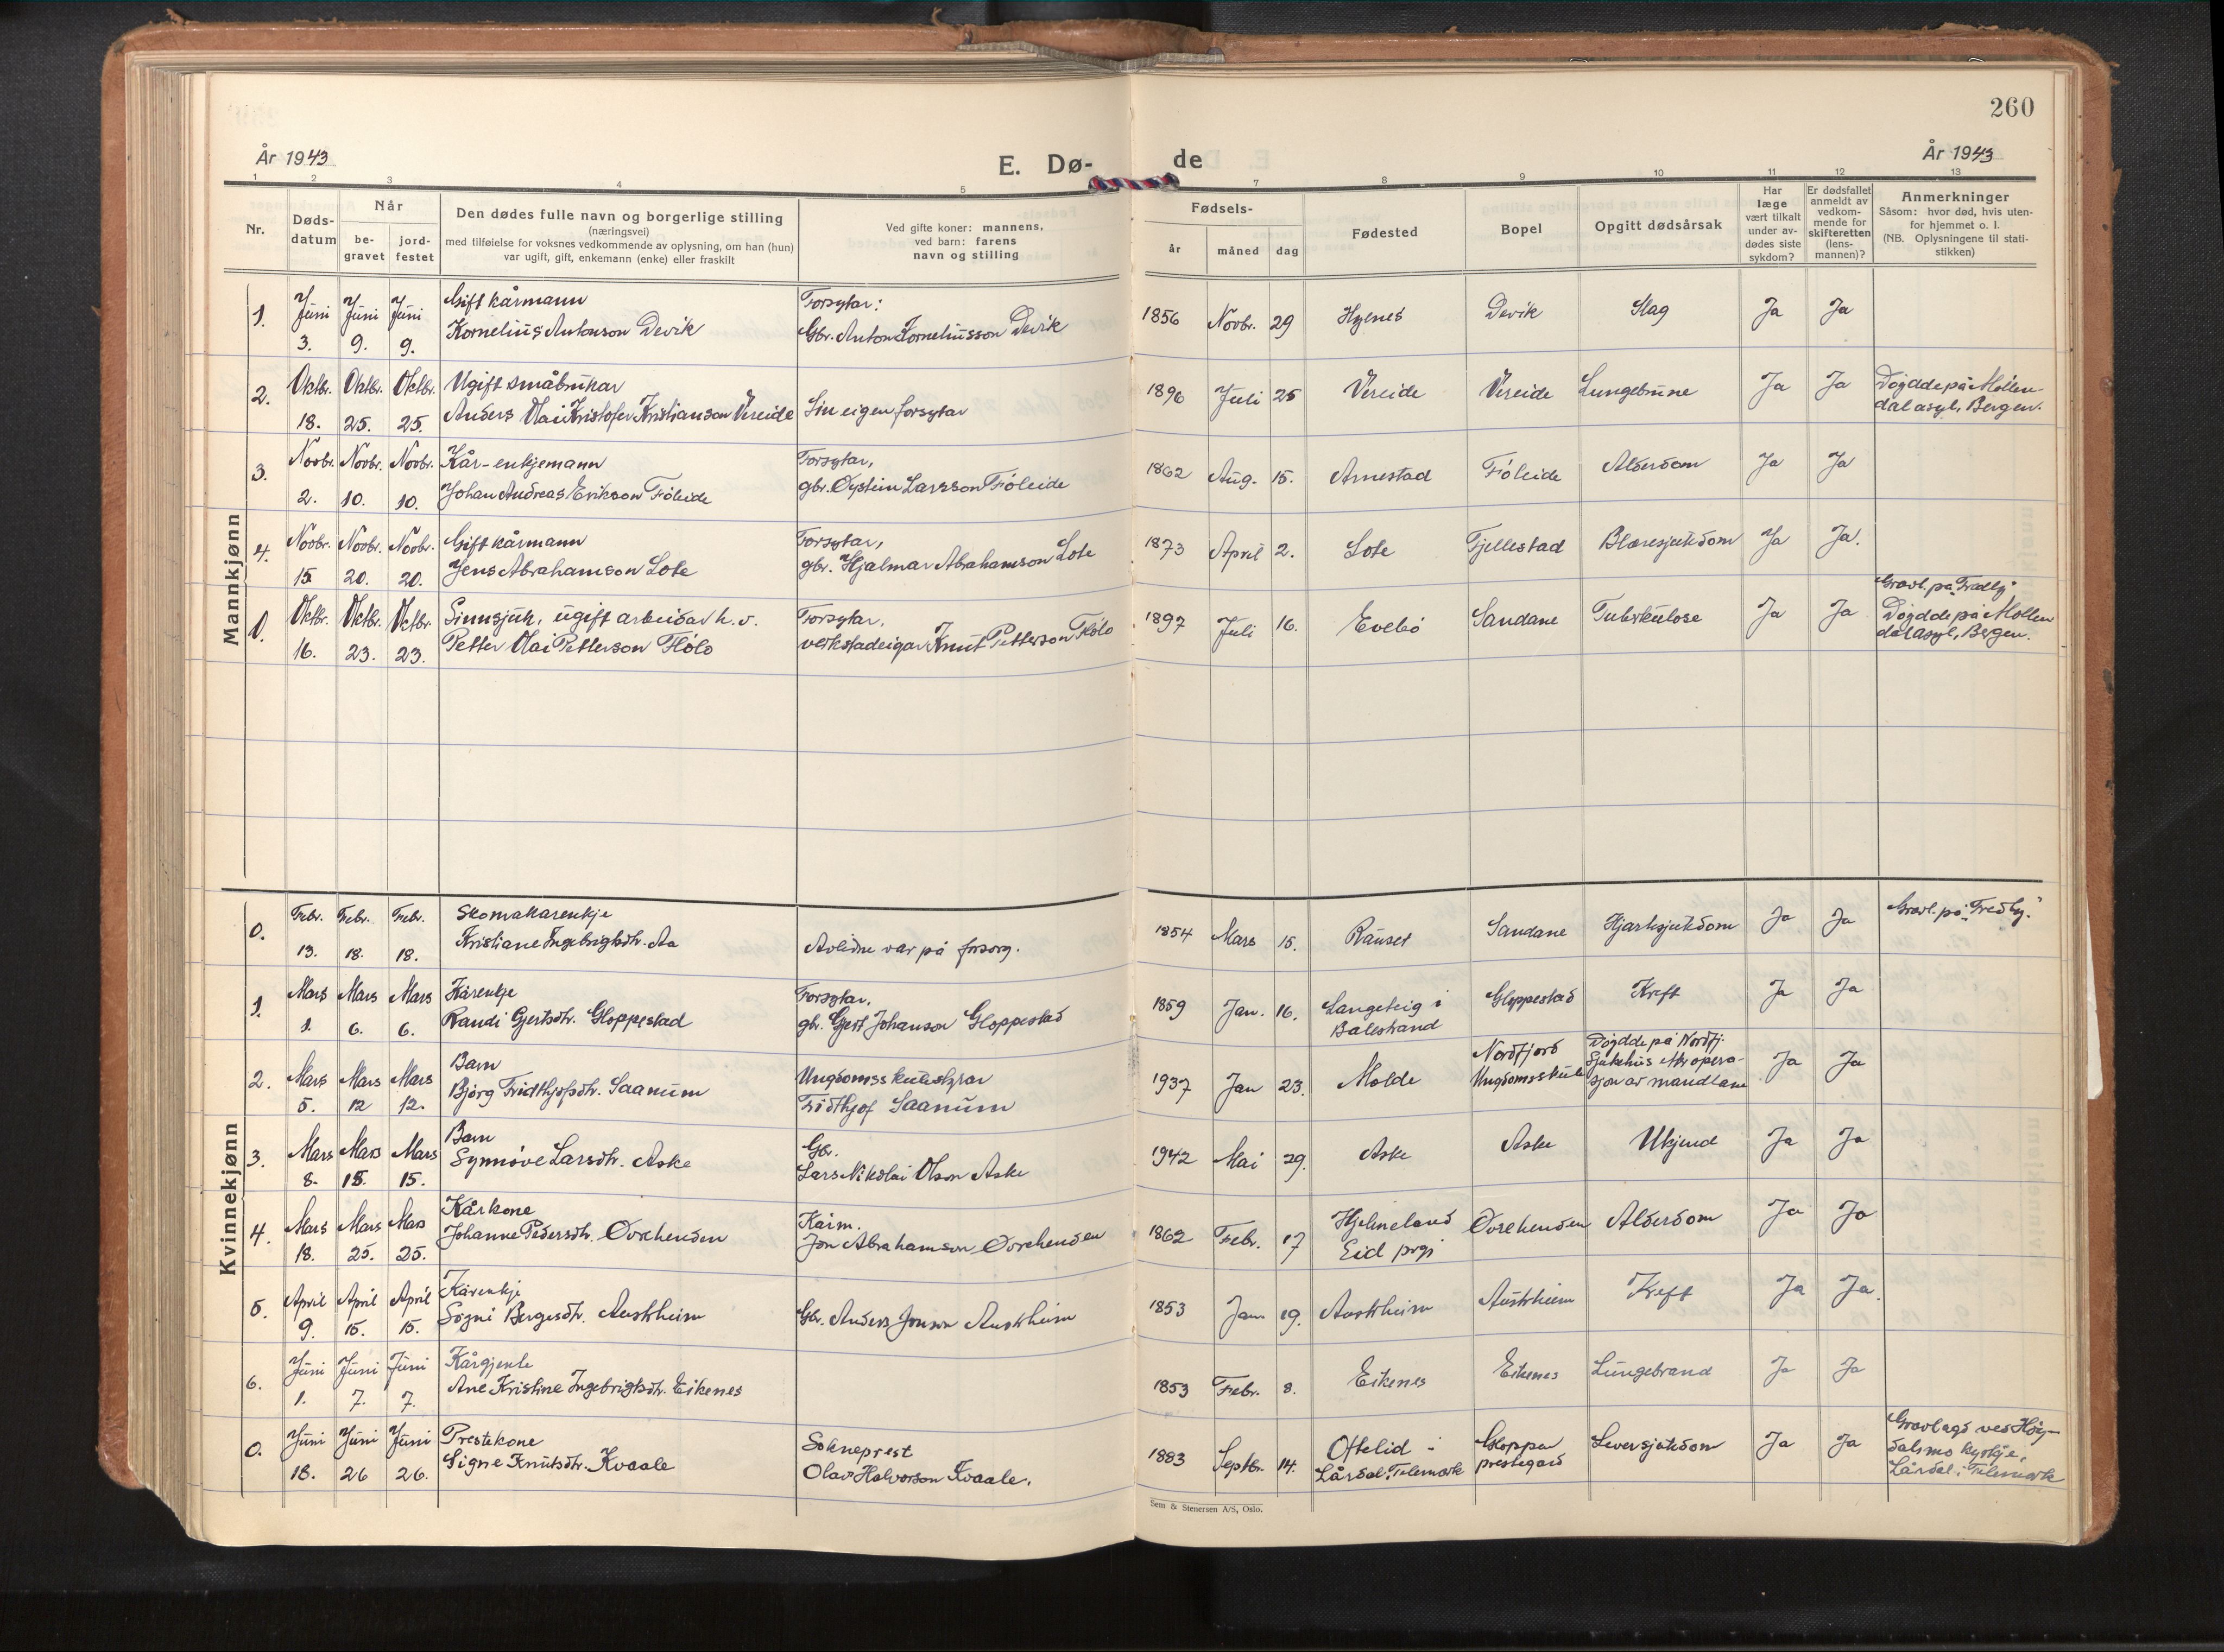 260
År 1943
E. Dø-
de
År 1943
1 2 3 4 5 7 8 9 10 11 12 13
Nr.
Døds-
datum
Når
be-
gravet
jord-
festet
Den dødes fulle navn og borgerlige stilling
(næringsvei)
med tilføielse for voksnes vedkommende av oplysning, om han (hun)
var ugift, gift, enkemann (enke) eller fraskilt
Ved gifte koner: mannens,
ved barn: farens
navn og stilling
Fødsels-
år
måned
dag
Fødested
Bopel
Opgitt dødsårsak
Har
læge
vært tilkalt
under av-
dødes siste
sykdom?
Er dødsfallet
anmeldt av
vedkom-
mende for
skifteretten
(lens-
mannen)?
Anmerkninger
Såsom: hvor død, hvis uten-
for hjemmet o. l.
(NB. Oplysningene til stati-
stikken)
Mannkjønn
1. Juni Juni Juni Gift kårmann Forsytar:
3. 9. 9. Kornelius Antonson Devik Gbr. Anton Korneliusson Devik 1856 Novbr. 29 Hyenes Devik Slag Ja Ja
2. Oktbr. Oktbr. Oktbr. Ugift småbrukar
18. 25. 25. Anders Olai Kristofer Kristianson Vereide Sin eigen forsytar 1896 Juli 25 Vereide Vereide Lungebrune Ja Ja Døydde på Møllen-
dal asyl, Bergen.
3. Novbr. Novbr. Novbr. Kår-enkjemann Forsytar,
2. 10. 10. Johan Andreas Erikson Føleide gbr. Øystein Larsson Føleide 1862 Aug. 15. Arnestad Føleide Alderdom Ja Ja
4. Novbr. Novbr. Novbr. Gift kårmann Forsytar,
15 20. 20. Jens Abrahamson Lote gbr. Hjalmar Abrahamson Lote 1873 April 2. Lote Fjellestad Blæresjukdom Ja Ja.
0. Oktbr. Oktbr. Oktbr. Sinnsjuk, ugift arbeidar h. v. Forsytar,
16. 23. 23. Petter Olai Petterson Flølo verkstadeigar Knut Petterson Flølo 1897 Juli 16. Evebø Sandane Tuberkulose Ja Ja Gravl. på "Fredly"
Døydde på Møllen
dal asyl, Bergen.
Kvinnekjønn
0. Febr. Febr. Febr. Skomakarenkje
13. 18. 18. Kristiane Ingebrigtsdtr. Aa Avlidne var på forsorg. 1854 Mars 15. Rauset Sandane Hjartesjukdom Ja Ja Gravl. på "Fredly."
1. Mars Mars Mars Kårenkje Forsytar,
1. 6. 6. Randi Gjertsdtr. Gloppestad gbr. Gjert Johanson Gloppestad 1859 Jan. 16. Langeteig i
Balestrand Gloppestad Kreft Ja Ja
2. Mars Mars Mars Barn Ungdomsskulestyrar
5. 12 12. Bjørg Fridthjofsdtr. Saanum Fridthjof Saanum 1937 Jan 23. Molde Nordfjord
Ungdomsskule Døydde på Nordfj.
Sjukehus etter opera-
sjon av mandlane Ja Ja
3. Mars Mars Mars Barn Gbr.
8. 15. 15. Synnøve Larsdtr. Aske Lars Nikolai Olson Aske 1942 Mai 29. Aske Aske Ukjend Ja Ja
4. Mars Mars Mars Kårkone Kårm.
18. 25. 25. Johanne Pedersdtr. Øvrehenden Jon Abrahamson Øvrehenden 1862 Febr. 17 Hjelmeland
Eid prgj Øvrehenden Alderdom Ja Ja
5. April April April Kårenkje
9. 15. 15. Søgni Bergesdtr. Austrheim Gbr. Anders Jonson Austrheim 1853 Jan. 19. Austrheim Austrheim Kreft Ja Ja.
6. Juni Juni Juni Kårgjente
1. 7. 7. Ane Kristine Ingebrigtsdtr. Eikenes 1853 Febr. 8. Eikenes Eikenes Lungebrand Ja Ja
0. Juni Juni Juni Prestekone Sokneprest
18. 26 26. Signe Knutsdtr. Kvaale Olav Halvorson Kvaale. 1883 Septbr. 14. Oftelid i
Lårdal, Telemark Gloppen
prestegard Leversjukdom Ja Ja Gravlagd ved Høy-
dalsmo kyrkje,
Lårdal i Telemark
Sem & Stenersen A/S, Oslo.